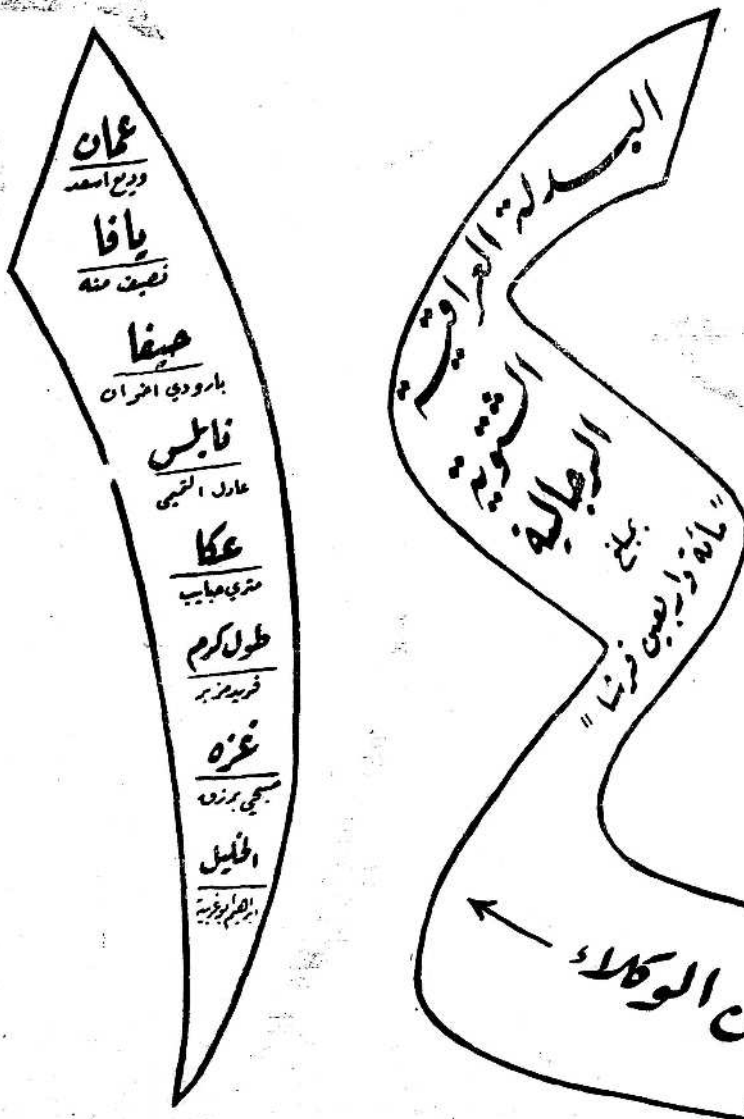 البدلة العراقية
الشتوية
الرجالية
بمبلغ
"مائة واربعين قرشا"
الوكلاء
عمان
وديع اسعد
يافا
نصيف منه
حيفا
بارودي اخوان
نابلس
عادل التميمي
عكا
متري حبايب
طول كرم
فريد مزبر
غزه
صبحي برزق
الخليل
ابراهيم ابو غربية